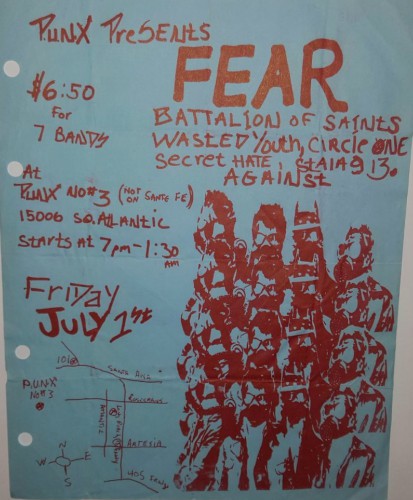 PUNX PreSENTS
FEAR
$6:50
For
7 BANDS
BATTALION OF SAINTS
WASTED YOUTH, CIRCLE ONE
Secret HATE, STALAG 13.
AGAINST
AT
PUNX NO#3 (NOT ON SANTA FE)
15006 SO. ATLANTIC
STARTS AT 7pm-1:30
AM
FriDay
JULY 1st
PUNX
NO#3
ARTESIA
N
W
E
S